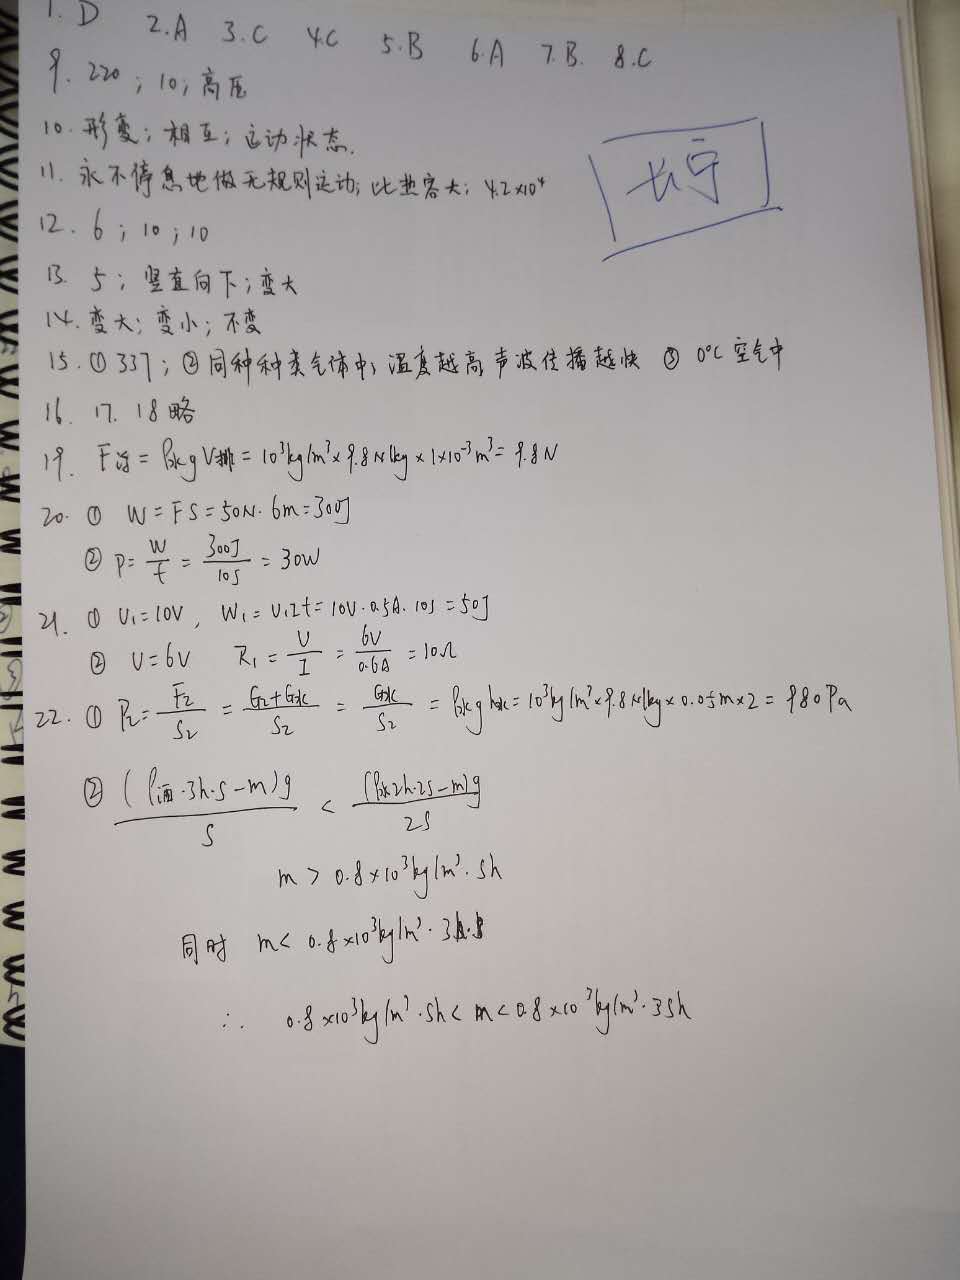 1. D 2. A 3. C 4. C 5. B 6. A 7. B. 8. C
9. 220 ; 10 ; 高压
10. 形变; 相互; 运动状态.
长宁
11. 永不停息地做无规则运动; 比热容大; 4.2×10⁴
12. 6 ; 10 ; 10
13. 5; 竖直向下; 变大
14. 变大; 变小; 不变
15. ① 337; ② 同种种类气体中, 温度越高, 声波传播越快 ③ 0℃ 空气中
16. 17. 18 略
19. F浮 = ρ水gV排 = 10³kg/m³×9.8N/kg×1×10⁻³m³ = 9.8N
20. ① W = FS = 50N·6m = 300J
② P = W/t = 300J/10s = 30W
21. ① U₁=10V, W₁ = U₁It = 10V·0.5A·10s = 50J
② U=6V R₁ = U/I = 6V/0.6A = 10Ω
22. ① P₂ = F₂/S₂ = G₂+G水/S₂ = G水/S₂ = ρ水gh水 = 10³kg/m³×9.8N/kg×0.05m×2 = 980Pa
② (ρ酒·3h·S-m)g/S < (ρ水2h·2S-m)g/2S
m > 0.8×10³kg/m³·Sh
同时 m < 0.8×10³kg/m³·3h·S
∴ 0.8×10³kg/m³·Sh < m < 0.8×10³kg/m³·3Sh